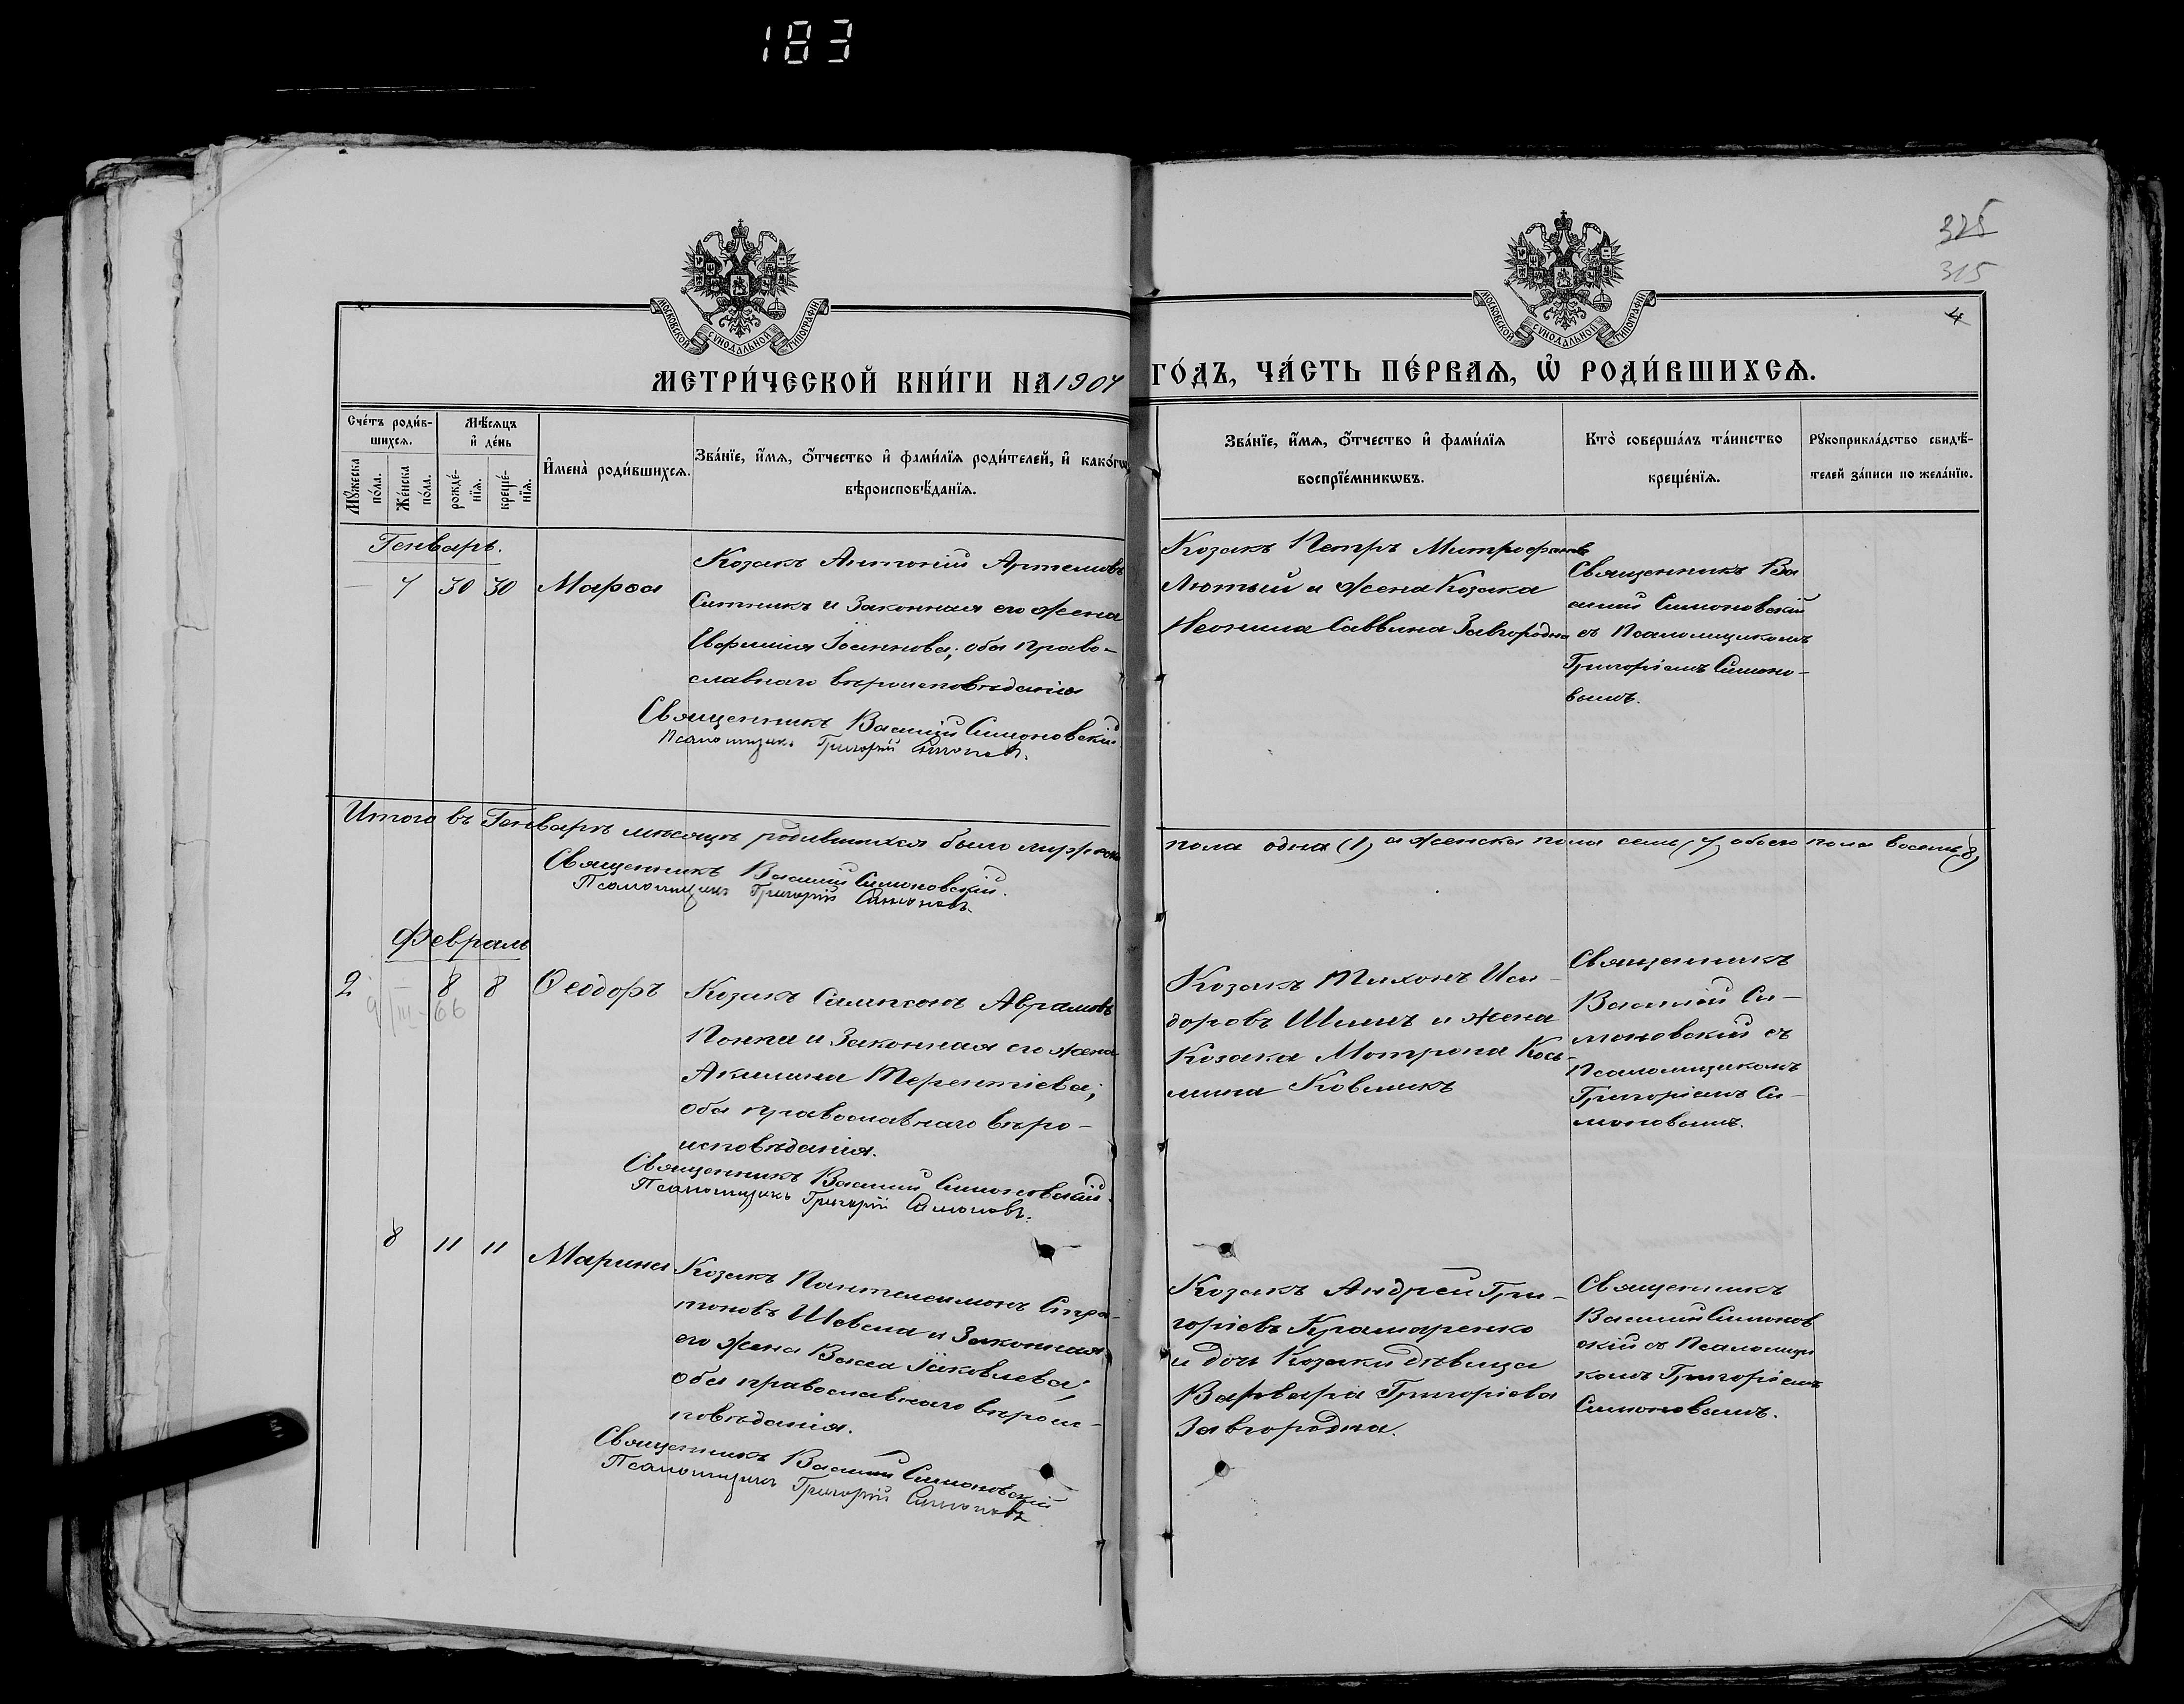 183
325
315
4
МОСКОВСКОЙ СѴНОДАЛЬНОЙ ТИПОГРАФІИ
МОСКОВСКОЙ СѴНОДАЛЬНОЙ ТИПОГРАФІИ
МЕТРИ́ЧЕСКОЙ КНИ́ГИ НА 1904 ГО́ДЪ, ЧА́СТЬ ПЕ́РВАѦ, Ѡ҆ РОДИ́ВШИХСѦ.
Сче́тъ роди́в-
шихсѧ.
Мꙋ́жеска
по́ла.
Же́нска
по́ла.
Мѣ́сѧцъ
и҆ де́нь
рожде́-
нїѧ.
креще́-
нїѧ.
И҆мена̀ роди́вшихсѧ.
Зва́нїе, и҆́мѧ, ѻ҆́тчество и҆ фами́лїѧ роди́телей, и҆ како́гѡ
вѣроисповѣ́данїѧ.
Зва́нїе, и҆́мѧ, ѻ҆́тчество и҆ фами́лїѧ
воспрїе́мникѡвъ.
Кто̀ соверша́лъ та́инство
креще́нїѧ.
Рꙋкоприкла́дство свидѣ́-
телей за́писи по жела́нїю.
Генварь.
— 7 30 30 Марѳа
Козакъ Антоній Артемовъ
Ситникъ и Законная его жена
Евфимія Іоаннова; оба право-
славнаго вѣроисповѣданія
Священникъ Василій Симоновскій
Псаломщикъ Григорій Симоновъ.
Козакъ Петръ Митрофановъ
Лютый и жена Козака
Неонила Саввина Завгородня
Священникъ Ва
силій Симоновскій
съ Псаломщикомъ
Григоріемъ Симоно-
вымъ.
Итого въ Генварѣ мѣсяцѣ родившихся было мужеска пола одна (1) а женска пола семь (7) обоего пола восемь (8)
Священникъ Василій Симоновскій.
Псаломщикъ Григорій Симоновъ.
Февраль
2 8 8 Ѳеодоръ
9/III-66
Козакъ Сампсонъ Аврамовъ
Попка и Законная его жена
Акилина Терентіева;
оба православнаго вѣро-
исповѣданія.
Священникъ Василій Симоновскій.
Псаломщикъ Григорій Симоновъ.
Козакъ Тихонъ Иси-
доровъ Шимъ и жена
Козака Мотрона Кось-
мина Ковмикъ
Священникъ
Василій Си-
моновскій съ
Псаломщикомъ
Григоріемъ Си-
моновымъ.
8 11 11 Марина
Козакъ Пантелеимонъ Стра-
тоновъ Шевела и Законная
его жена Васса Іаковлева;
оба православнаго вѣроис-
повѣданія.
Священникъ Василій Симоновскій
Псаломщикъ Григорій Симоновъ
Козакъ Андрей Гри-
горіевъ Крамаренко
и дочь Козака дѣвица
Варвара Григоріева
Завгородня.
Священникъ
Василій Симонов
скій съ Псаломщи
комъ Григоріемъ
Симоновымъ.